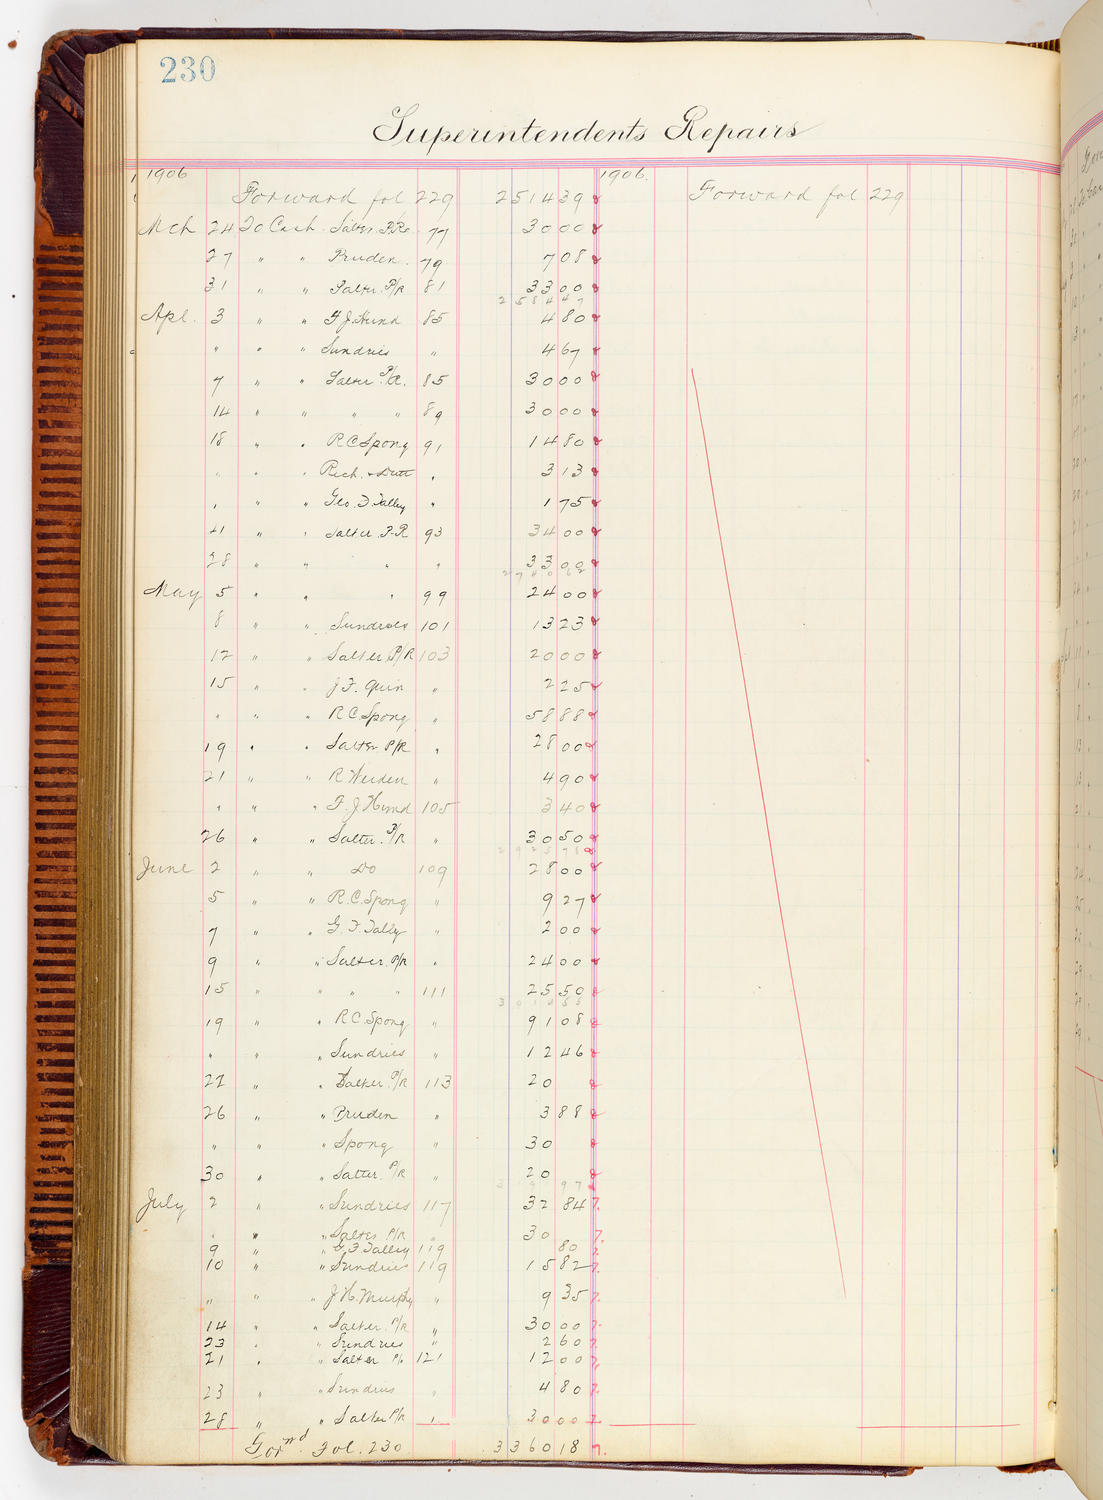 230
Superintendents Repairs
1906 1906.
Forward fol 229 2514 39 Forward fol 229
Mch 24 To Cash Salter P/Ro 77 30 00
27 " " Pruden. 79 7 08
31 " " Salter. P/R 81 33 00
2584 47
Apl. 3 " " F J. Hund 85 4 80
" " " Sundries " 4 67
7 " " Salter P/R. 85 30 00
14 " " " " 89 30 00
18 " " R C Spong 91 14 80
" " " Rich. & Dutt " 3 13
" " " Geo. F Talley " 1 75
21 " " Salter. P-R 93 34 00
28 " " " " 33 00
2740 62
May 5 " " " 99 24 00
8 " " Sundries 101 13 23
12 " " Salter P/R 103 20 00
15 " " J F. Quin " 2 25
" " " R C Spong " 58 88
19 " " Salter P/R " 28 00
21 " " R Weiden " 4 90
" " " F. J Hund 105 3 40
26 " " Salter. P/R " 30 50
2925 78
June 2 " " Do 109 28 00
5 " " R. C. Spong " 9 27
7 " " G. F. Tally " 2 00
9 " " Salter. P/R " 24 00
15 " " " " 111 25 50
19 " " R C. Spong " 91 08
" " " Sundries " 12 46
22 " " Salter. P/R 113 20
26 " " Pruden " 3 88
" " " Spong " 30
30 " " Salter. P/R " 20
July 2 " " Sundries 117 32 84
" " " Salter P/R " 30
9 " " G. F Talley 119 80
10 " " Sundries 119 15 82
" " " J H. Murphy " 9 35
14 " " Salter. P/R " 30 00
23 " " Sundries " 2 60
21 " " Salter P/R 121 12 00
23 " " Sundries " 4 80
28 " " Salter P/R " 30 00
Forwd. Fol. 230 3360 18